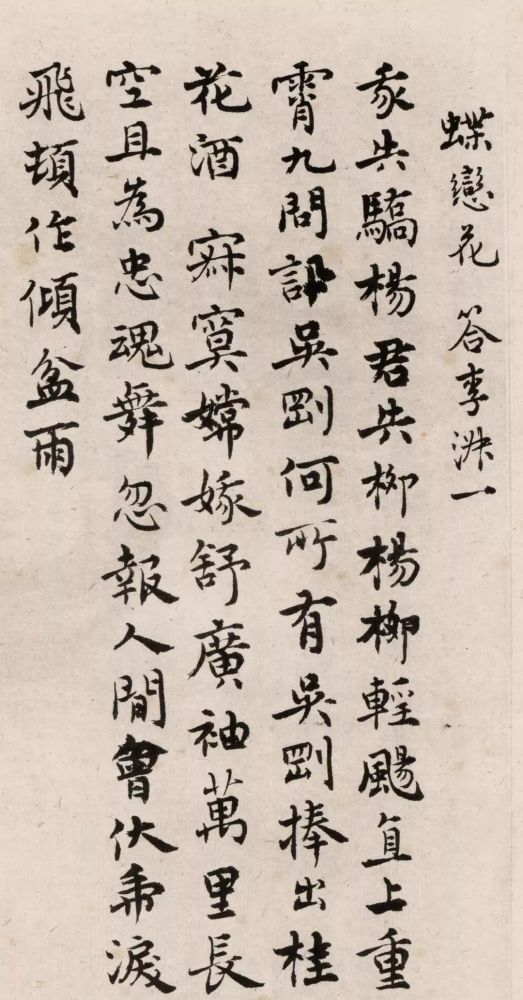 蝶戀花 答李淑一
我失驕楊君失柳楊柳輕颺直上重
霄九問訊吳剛何所有吳剛捧出桂
花酒 寂寞嫦娥舒廣袖萬里長
空且為忠魂舞忽報人間曾伏虎淚
飛頓作傾盆雨